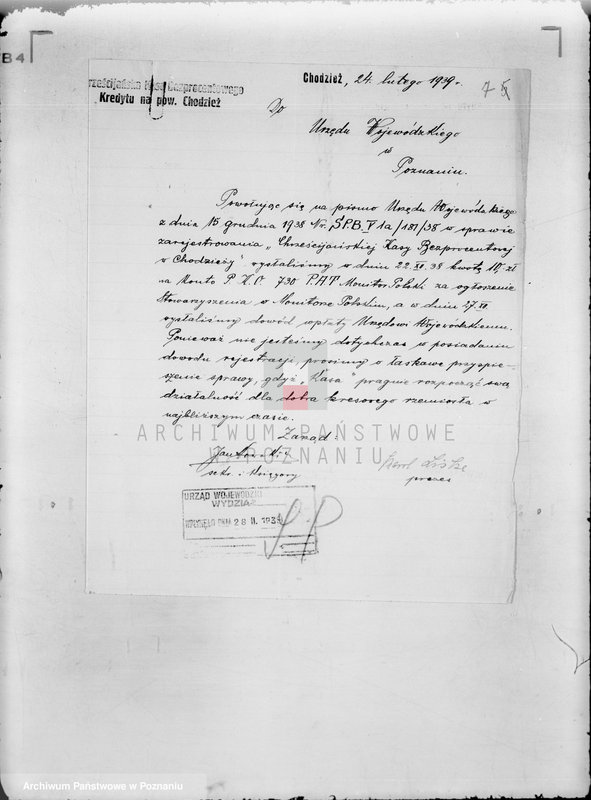 B4
Chrześcijańska Kasa Bezprocentowego
Kredytu na pow. Chodzież
Chodzież, 24. lutego 1939 r.
75
Do
Urzędu Wojewódzkiego
w
Poznaniu.
Powołując się na pismo Urzędu Wojewódzkiego
z dnia 15 grudnia 1938 Nr. S.P.B. V 1a/181/38 w sprawie
zarejestrowania „Chrześcijańskiej Kasy Bezprocentowej
w Chodzieży" wysłaliśmy w dniu 22.XII.38 kwotę 10,- zł
na Konto P.K.O. 730 P.A.T. Monitor Polski za ogłoszenie
Stowarzyszenia w Monitorze Polskim, a w dniu 27.XII.
wysłaliśmy dowód wpłaty Urzędowi Wojewódzkiemu.
Ponieważ nie jesteśmy dotychczas w posiadaniu
dowodu rejestracji, prosimy o łaskawe przyspie-
szenie sprawy, gdyż „Kasa" pragnie rozpocząć swą
działalność dla dobra kresowego rzemiosła w
najbliższym czasie.
Zarząd
sekr. i księgowy
prezes
URZĄD WOJEWÓDZKI
WYDZIAŁ
WPŁYNĘŁO DNIA 28 II. 1939
ARCHIWUM PAŃSTWOWE
W POZNANIU
Archiwum Państwowe w Poznaniu